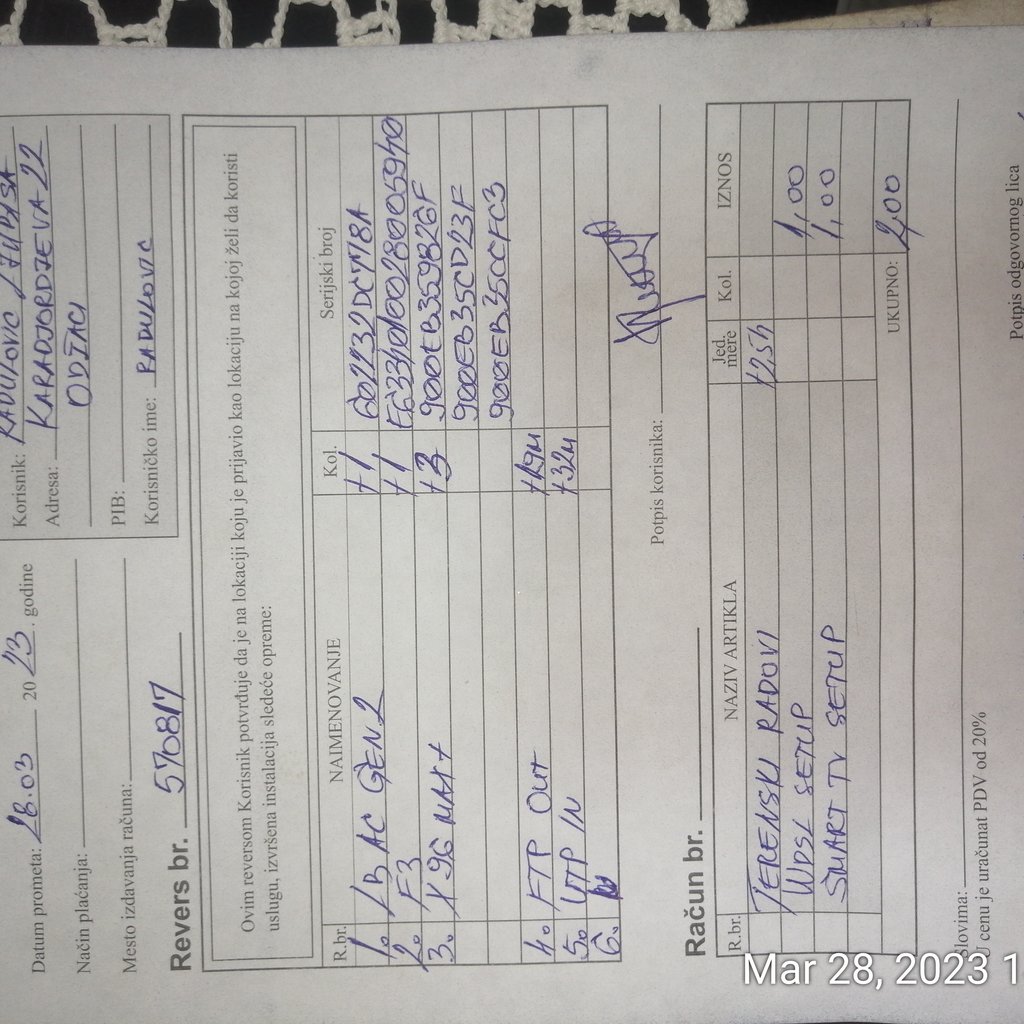 Datum prometa: 28.03 2023. godine
Način plaćanja:
Mesto izdavanja računa:
Korisnik: RADULOVIC
Adresa: KARADJORDJEVA 22
ODŽACI
PIB:
Korisničko ime: RADULOVIC
Revers br. 570817
Ovim reversom Korisnik potvrđuje da je na lokaciji koju je prijavio kao lokaciju na kojoj želi da koristi
uslugu, izvršena instalacija sledeće opreme:
R.br. NAIMENOVANJE Kol. Serijski broj
1. LB AC GEN2 +1
2. F3 +1
3. X96 MAX+ +3 900EB359B26F
900EB35CD23F
900EB35CCFC3
4. FTP OUT
5. UTP IN +32M
6.
Potpis korisnika:
Račun br.
R.br. NAZIV ARTIKLA Jed. mere Kol. IZNOS
TERENSKI RADOVI
WDSL SETUP 1,00
SMART TV SETUP 1,00
UKUPNO: 2,00
Slovima:
U cenu je uračunat PDV od 20%
Potpis odgovornog lica
Mar 28, 2023 1